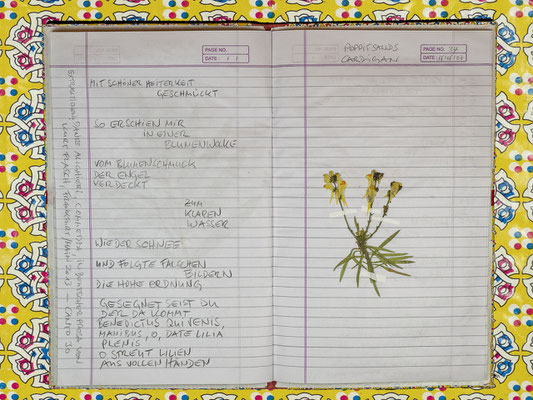 PAGE NO.
DATE / /
MIT SCHÖNER HEITERKEIT
GESCHMÜCKT
SO ERSCHIEN MIR
IN EINER
BLUMENWOLKE
VOM BLUMENSCHMUCK
DER ENGEL
VERDECKT
ZUM
KLAREN
WASSER
WIEDER SCHNEE
UND FOLGTE FALSCHEN
BILDERN
DIE HOHE ORDNUNG
GESEGNET SEIST DU
DER DA KOMMT
BENEDICTUS QUI VENIS,
MANIBUS, O, DATE LILIA
PLENIS
O STREUT LILIEN
AUS VOLLEN HÄNDEN
DANTE ALIGHIERI, COMMEDIA, IN DEUTSCHER PROSA VON
KURT FLASCH, FRANKFURT/MAIN 2013 — CANTO 30
POPPIT SANDS
CARDIGAN
PAGE NO. 34
DATE